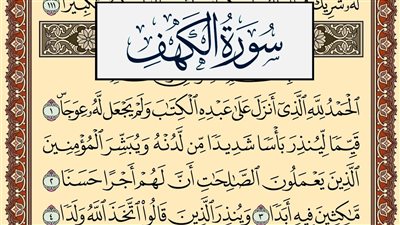 لَّهُۥ شَرِيكٌ
تَكْبِيرًۢا ١١١
سُورَةُ الكَهْفِ
ٱلْحَمْدُ لِلَّهِ ٱلَّذِىٓ أَنزَلَ عَلَىٰ عَبْدِهِ ٱلْكِتَٰبَ وَلَمْ يَجْعَل لَّهُۥ عِوَجَاۜ ١
قَيِّمًا لِّيُنذِرَ بَأْسًا شَدِيدًا مِّن لَّدُنْهُ وَيُبَشِّرَ ٱلْمُؤْمِنِينَ
ٱلَّذِينَ يَعْمَلُونَ ٱلصَّٰلِحَٰتِ أَنَّ لَهُمْ أَجْرًا حَسَنًا ٢
مَّٰكِثِينَ فِيهِ أَبَدًا ٣ وَيُنذِرَ ٱلَّذِينَ قَالُوا۟ ٱتَّخَذَ ٱللَّهُ وَلَدًا ٤